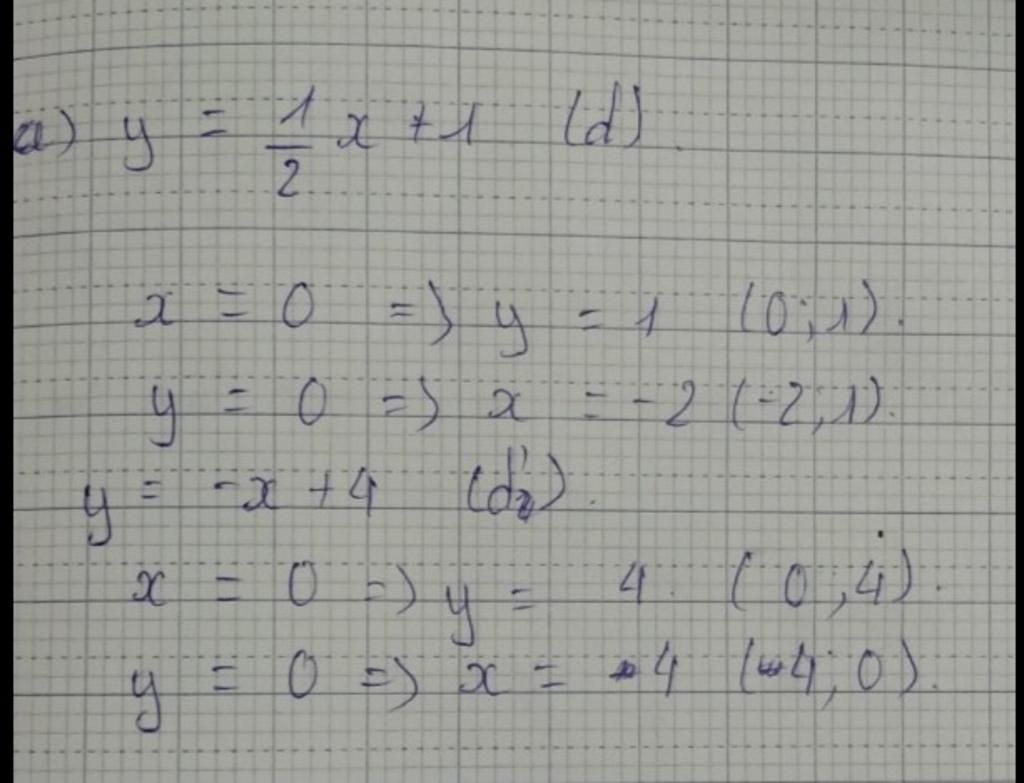 a) y = 1/2 x + 1 (d)
x = 0 => y = 1 (0; 1).
y = 0 => x = -2 (-2; 1).
y = -x + 4 (d').
x = 0 => y = 4. (0; 4).
y = 0 => x = 4 (4; 0).